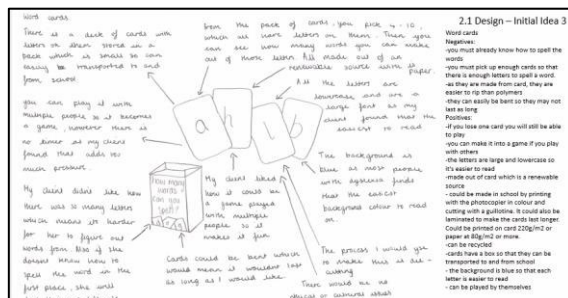 Word cards
There is a deck of cards with
letters on them stored in a
pack which is small so can
easily be transported to and
from school.
you can play it with
multiple people so it becomes
a game, however there is
no timer as my client
found that adds too
much pressure.
My client didn't like how
there was so many letters
which means its harder
for her to figure out
words from. Also if she
doesn't know how to
spell the word in the
first place, she will
from the pack of cards, you pick 4-10,
which will have letters on them. Then you
can see how many words you can make
out of those letters. All made out of an
renewable source which is
paper.
All the letters are
lowercase and are a
large font as my
client found that the
easiest to read
a h l b
how many
words
can you
spell?
The background is
blue as most people
with dyslexia finds
that the easiest
background colour to read
on.
My client liked
how it could be
a game played
with multiple
people so it
makes it fun
Cards could be bent which
would mean it wouldn't last
as long as I would like.
The process I would use
to make this is die-
cutting
There would be no
ethical or cultural issues
2.1 Design – Initial Idea 3
Word cards
Negatives:
-you must already know how to spell the
words
-you must pick up enough cards so that
there is enough letters to spell a word.
-as they are made from card, they are
easier to rip than polymers
-they can easily be bent so they may not
last as long
Positives:
-if you lose one card you will still be able
to play
-you can make it into a game if you play with
others
-the letters are large and lowercase so
it's easier to read
-made out of card which is a renewable
source
- could be made in school by printing
with the photocopier in colour and
cutting with a guillotine. It could also be
laminated to make the cards last longer.
Could be printed on card 220g/m2 or
paper at 80g/m2 or more.
-can be recycled
-cards have a box so that they can be
transported to and from school
- the background is blue so that each
letter is easier to read
- can be played by themselves